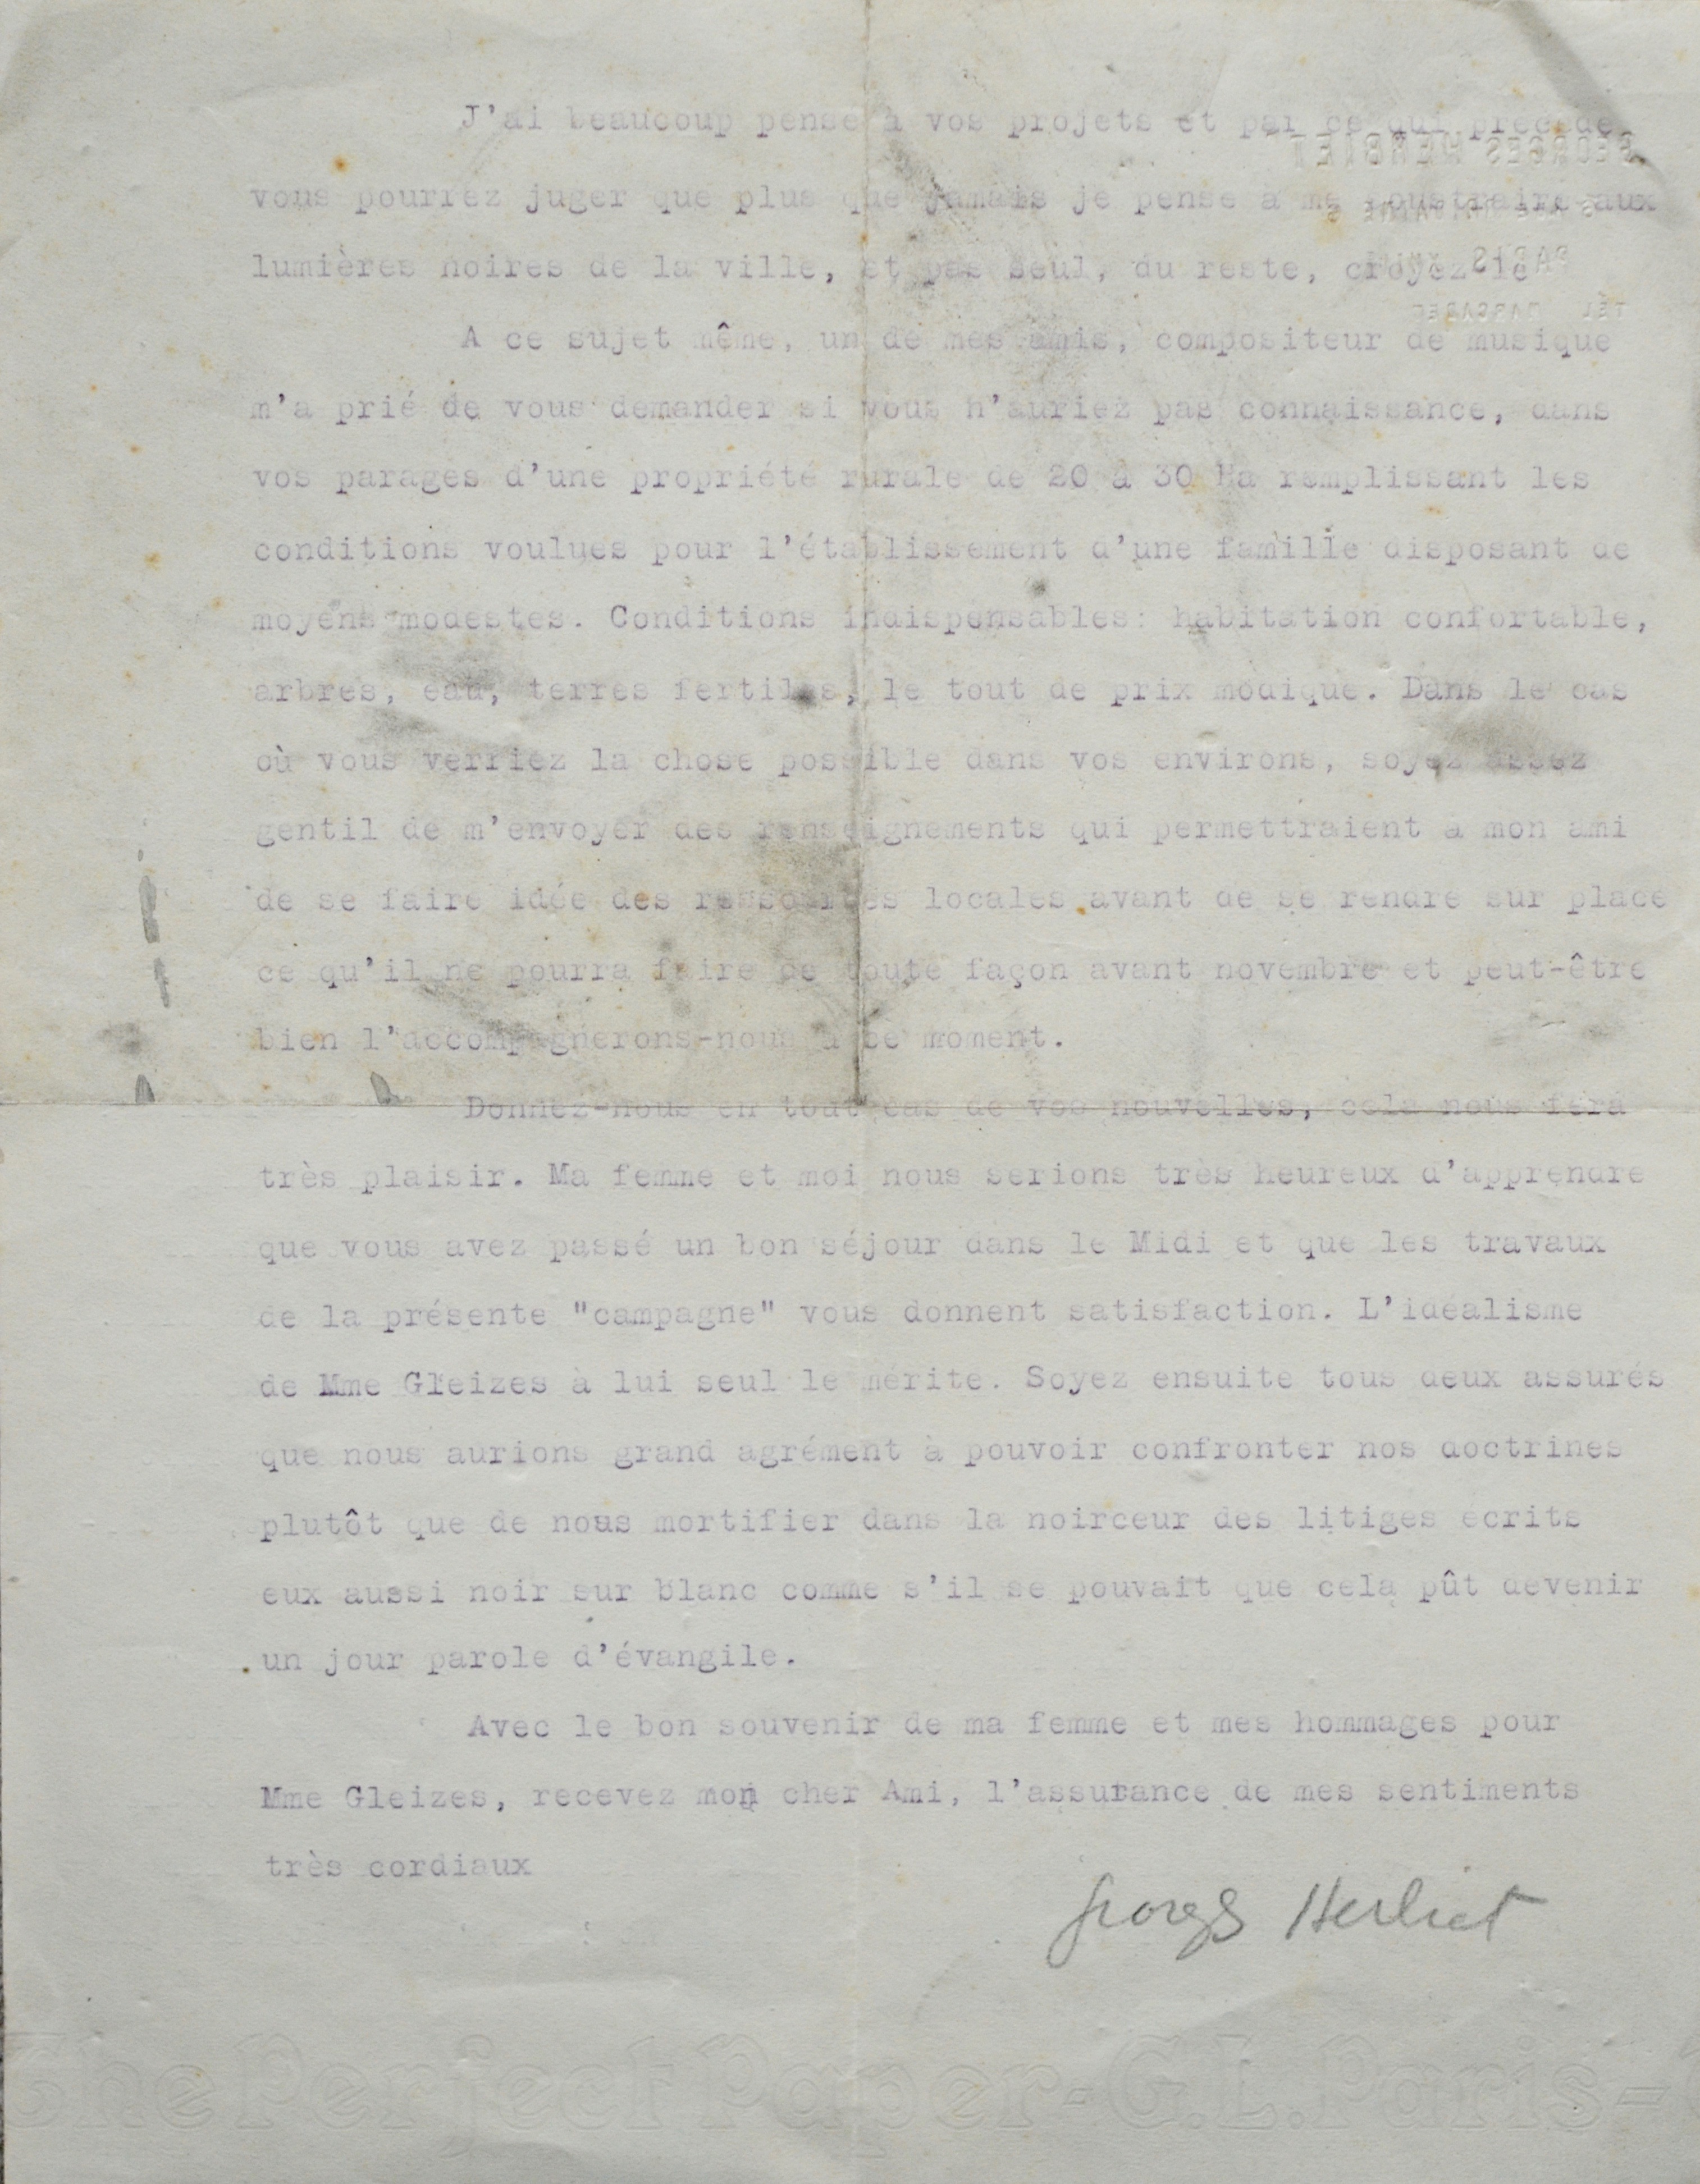 J'ai beaucoup pensé à vos projets et par ce qui précède
vous pourrez juger que plus que jamais je pense à me soustraire aux
lumières noires de la ville, et pas seul, du reste, croyez-le
A ce sujet même, un de mes amis, compositeur de musique
m'a prié de vous demander si vous n'auriez pas connaissance, dans
vos parages d'une propriété rurale de 20 à 30 Ha remplissant les
conditions voulues pour l'établissement d'une famille disposant de
moyens modestes. Conditions indispensables: habitation confortable,
arbres, eau, terres fertiles, le tout de prix modique. Dans le cas
où vous verriez la chose possible dans vos environs, soyez assez
gentil de m'envoyer des renseignements qui permettraient à mon ami
de se faire idée des ressources locales avant de se rendre sur place
ce qu'il ne pourra faire de toute façon avant novembre et peut-être
bien l'accompagnerons-nous à ce moment.
Donnez-nous en tout cas de vos nouvelles, cela nous fera
très plaisir. Ma femme et moi nous serions très heureux d'apprendre
que vous avez passé un bon séjour dans le Midi et que les travaux
de la présente "campagne" vous donnent satisfaction. L'idéalisme
de Mme Gleizes à lui seul le mérite. Soyez ensuite tous deux assurés
que nous aurions grand agrément à pouvoir confronter nos doctrines
plutôt que de nous mortifier dans la noirceur des litiges écrits
eux aussi noir sur blanc comme s'il se pouvait que cela pût devenir
un jour parole d'évangile.
Avec le bon souvenir de ma femme et mes hommages pour
Mme Gleizes, recevez mon cher Ami, l'assurance de mes sentiments
très cordiaux
Georges Herbiet
The Perfect Paper-G.L.Paris-